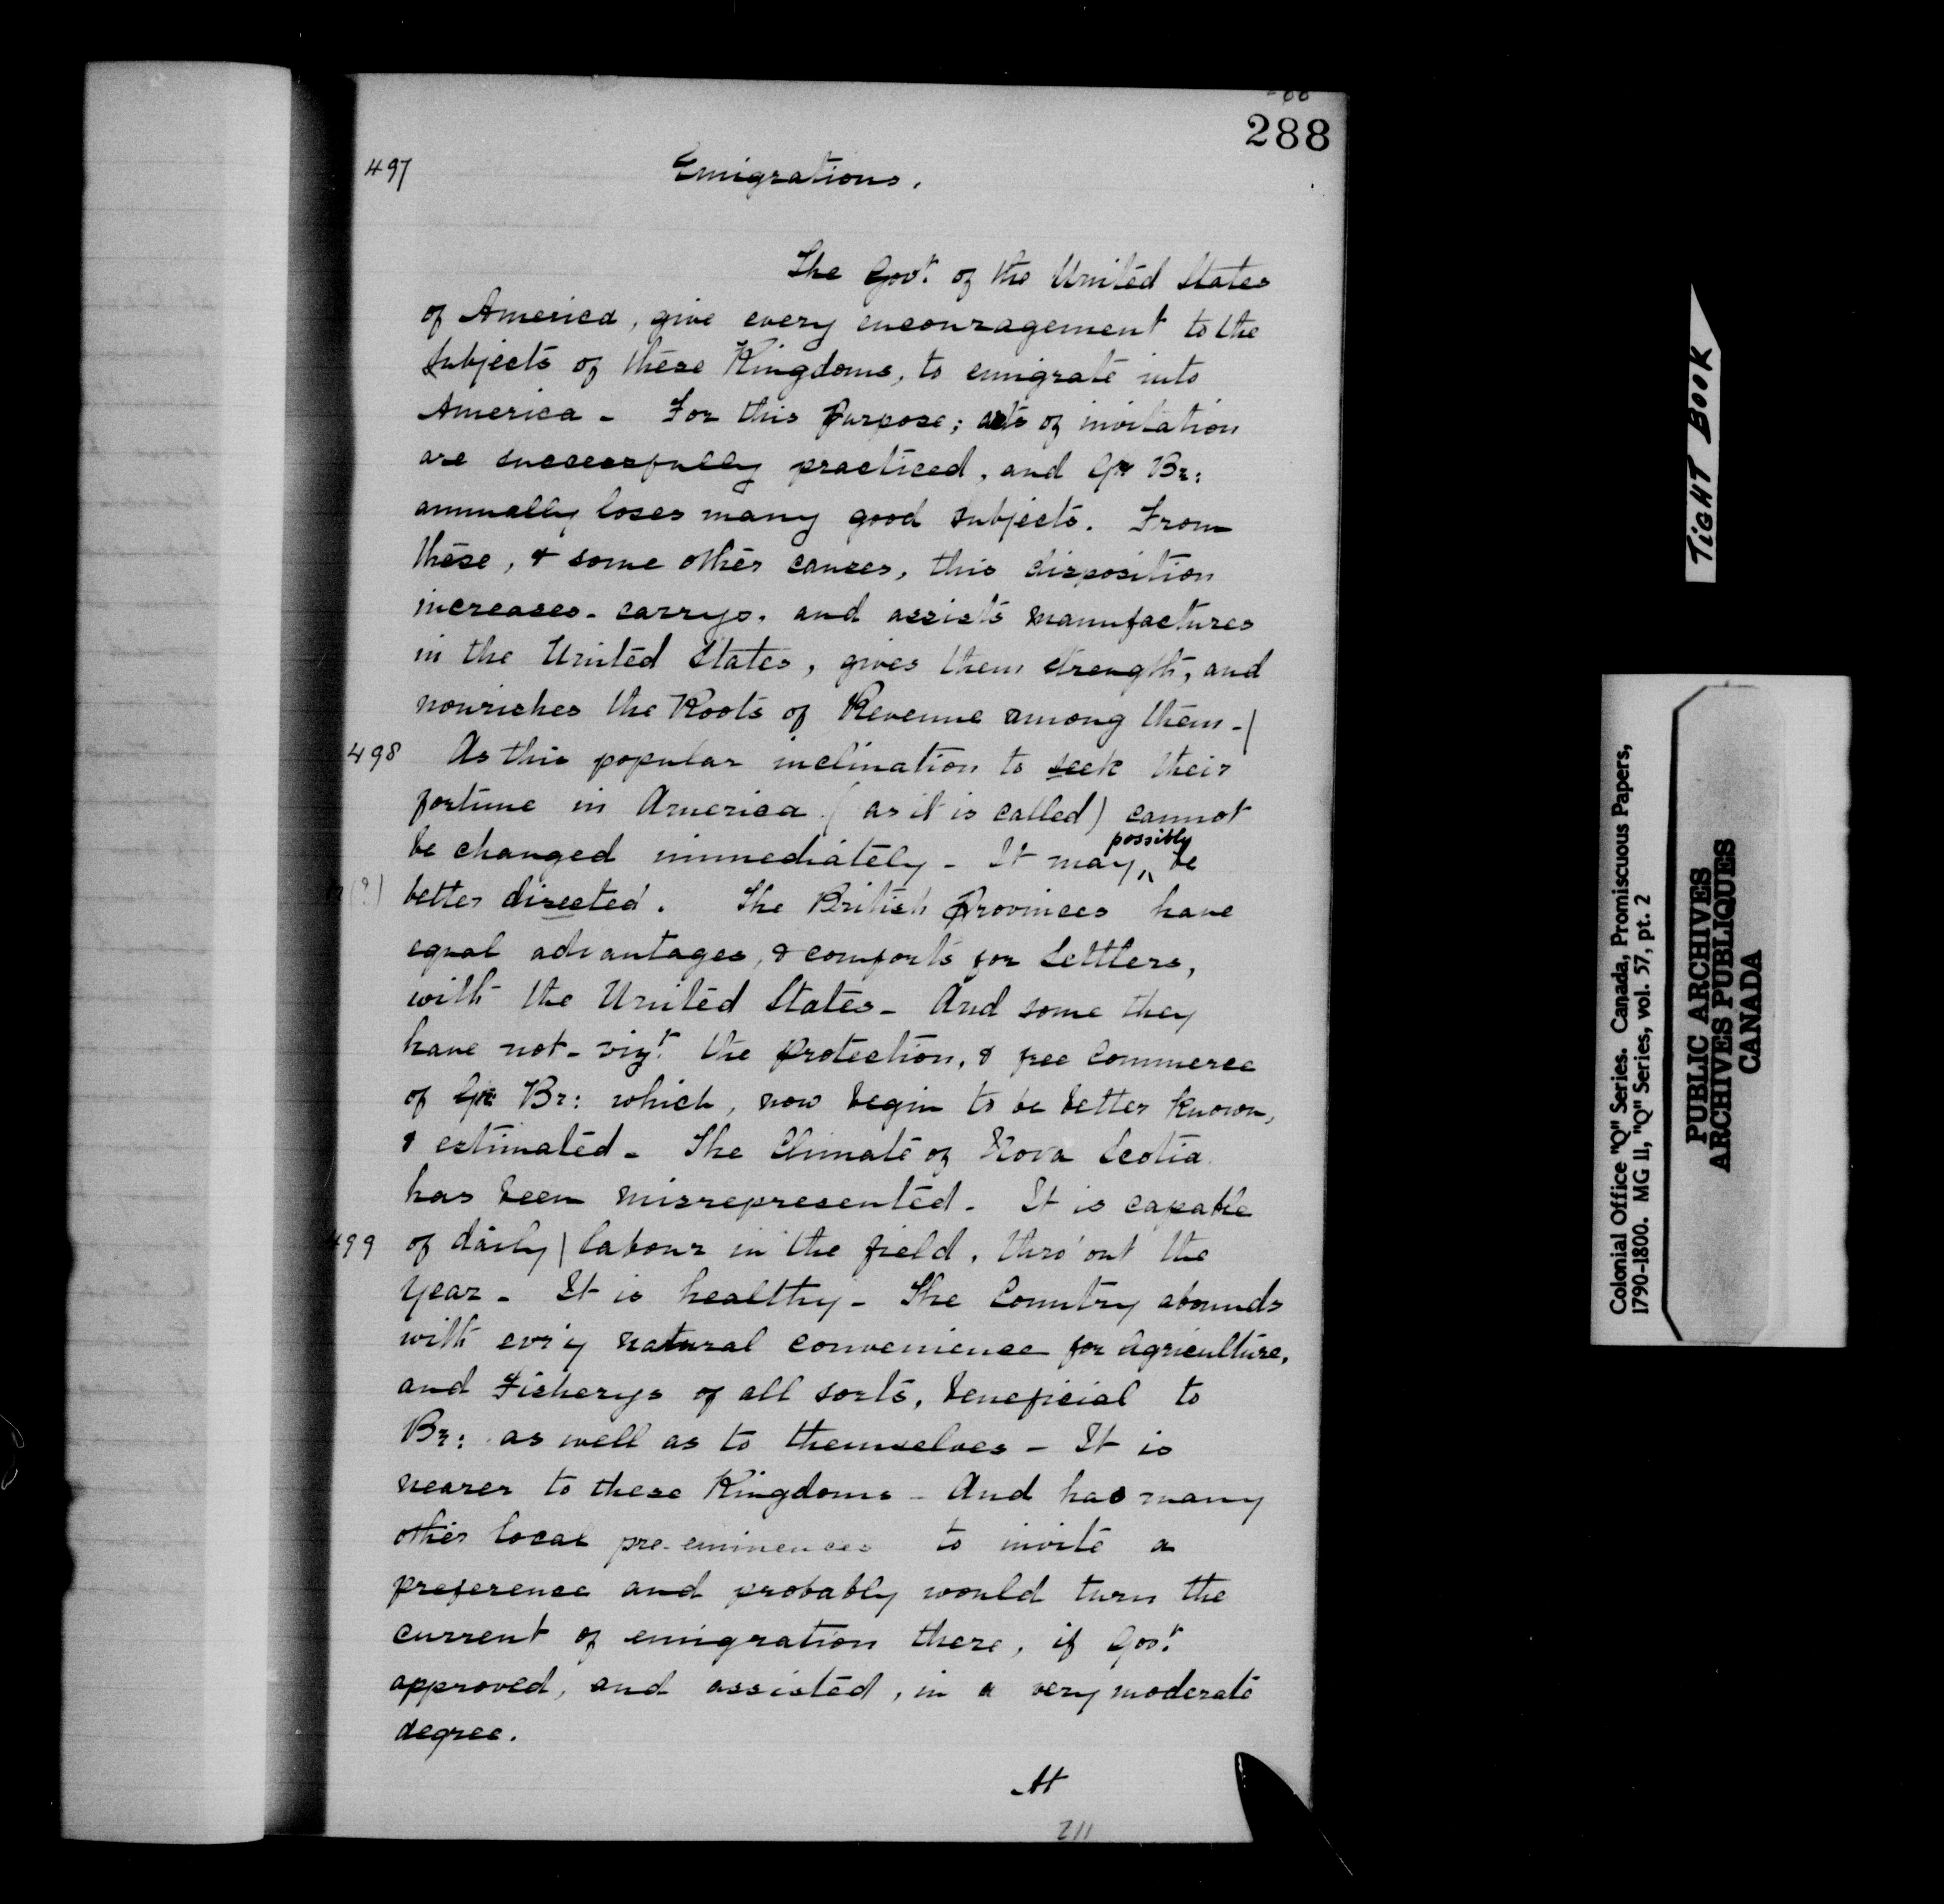 288
497
Emigrations.
The Govt. of the United States
of America, give every encouragement to the
subjects of these Kingdoms, to emigrate into
America - For this purpose; acts of invitation
are successfully practiced, and Gr Br:
annually loses many good subjects. From
these, & some other causes, this disposition
increases - carrys, and assists manufactures
in the United States, gives them strength, and
nourishes the Roots of Revenue among them - |
498 As this popular inclination to seek their
fortune in America (as it is called) cannot
possibly
be changed immediately - It may, ^ be
better directed. The British Provinces have
equal advantages, & comforts for Settlers,
with the United States - And some they
have not - vizt. the protection, & free Commerce
of Gr Br: which, now begin to be better known,
& estimated - The Climate of Nova Scotia
has been misrepresented - It is capable
499 of daily | labour in the field, thro'out the
year - It is healthy - The Country abounds
with ev'ry natural convenience for Agriculture,
and Fisherys of all sorts, beneficial to
Br: as well as to themselves - It is
nearer to these Kingdoms - And has many
other local pre-eminences to invite a
preference and probably would turn the
current of emigration there, if Govt.
approved, and assisted, in a very moderate
degree.
At
211
TIGHT BOOK
Colonial Office "Q" Series. Canada, Promiscuous Papers,
1790-1800. MG 11, "Q" Series, vol. 57, pt. 2
PUBLIC ARCHIVES
ARCHIVES PUBLIQUES
CANADA